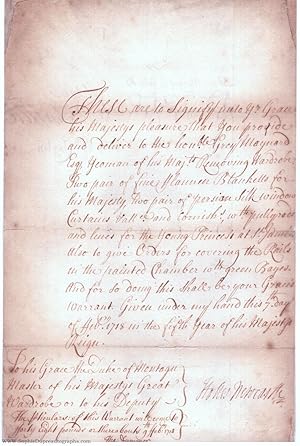 These are to Signify unto Yr Grace
his Majestys pleasure that You provide
and deliver to the Honble Grey Maynard
Esq Yeoman of his Majts Removing Wardrobe
Two pair of fine Flannen Blanketts for
his Majesty two pair of persian silk window
Curtains Vall and Cornish's wth pullyrods
and lines for the Young Princess at St James's
also to give Orders for covering the Rails
in the painted Chamber wth green Bayes.
And for so doing this shall be your Graces
Warrant Given under my hand this 7 day
of Febry 1718 in the fifth Year of his Majestys
Reign.
To his Grace the Duke of Montagu
Master of his Majestys Great
Wardrobe or to his Deputy
The particulars of this Warrant will come to
forty eight pounds or thereabouts 1718
Holles Newcastle